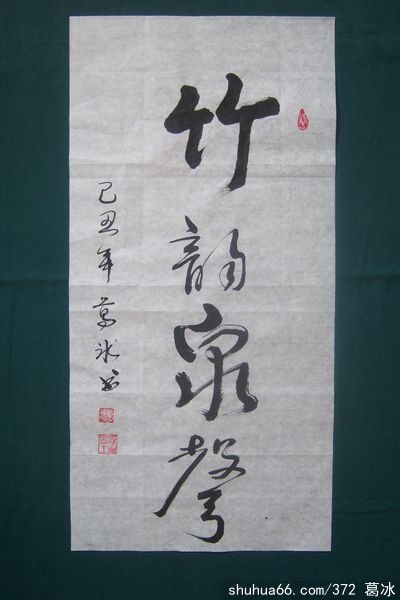 竹韵泉聲
己丑年葛冰书
shuhua66.com/372 葛冰